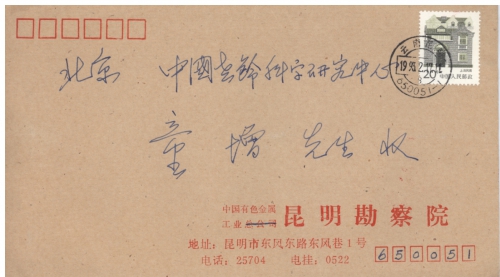 北京 中國老龄科学研究中心
童增 先生收
云南昆明
1993.2
650051
20
中国人民邮政
中国有色金属
工业总公司 昆明勘察院
地址:昆明市东风东路东风巷1号
电话:25704 电挂:0522
650051